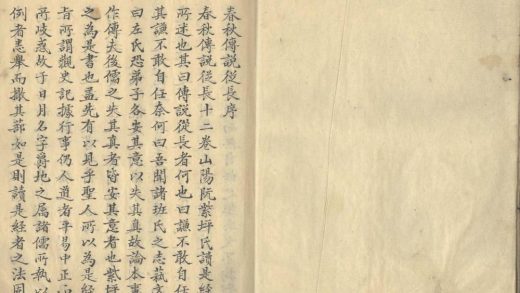 春秋傳說從長序
春秋傳說從長十二卷山陽阮紫坪氏讀是經
所述也其曰傳說從長者何也曰謙不敢自任
其謙不敢自任奈何曰吾聞諸班氏之志藝文
曰左氏恐弟子各安其意以失其真故論本事
作傳夫後儒之失其真者皆安其意者也紫坪
之為是書也蓋先有以見乎聖人所以為是經
者所謂觀史記據行事仍人道者平易中正
所歧惑故于日月名字爵地之屬諸儒所執以
例者悉舉而撤其蔀如是則讀是經者之法固